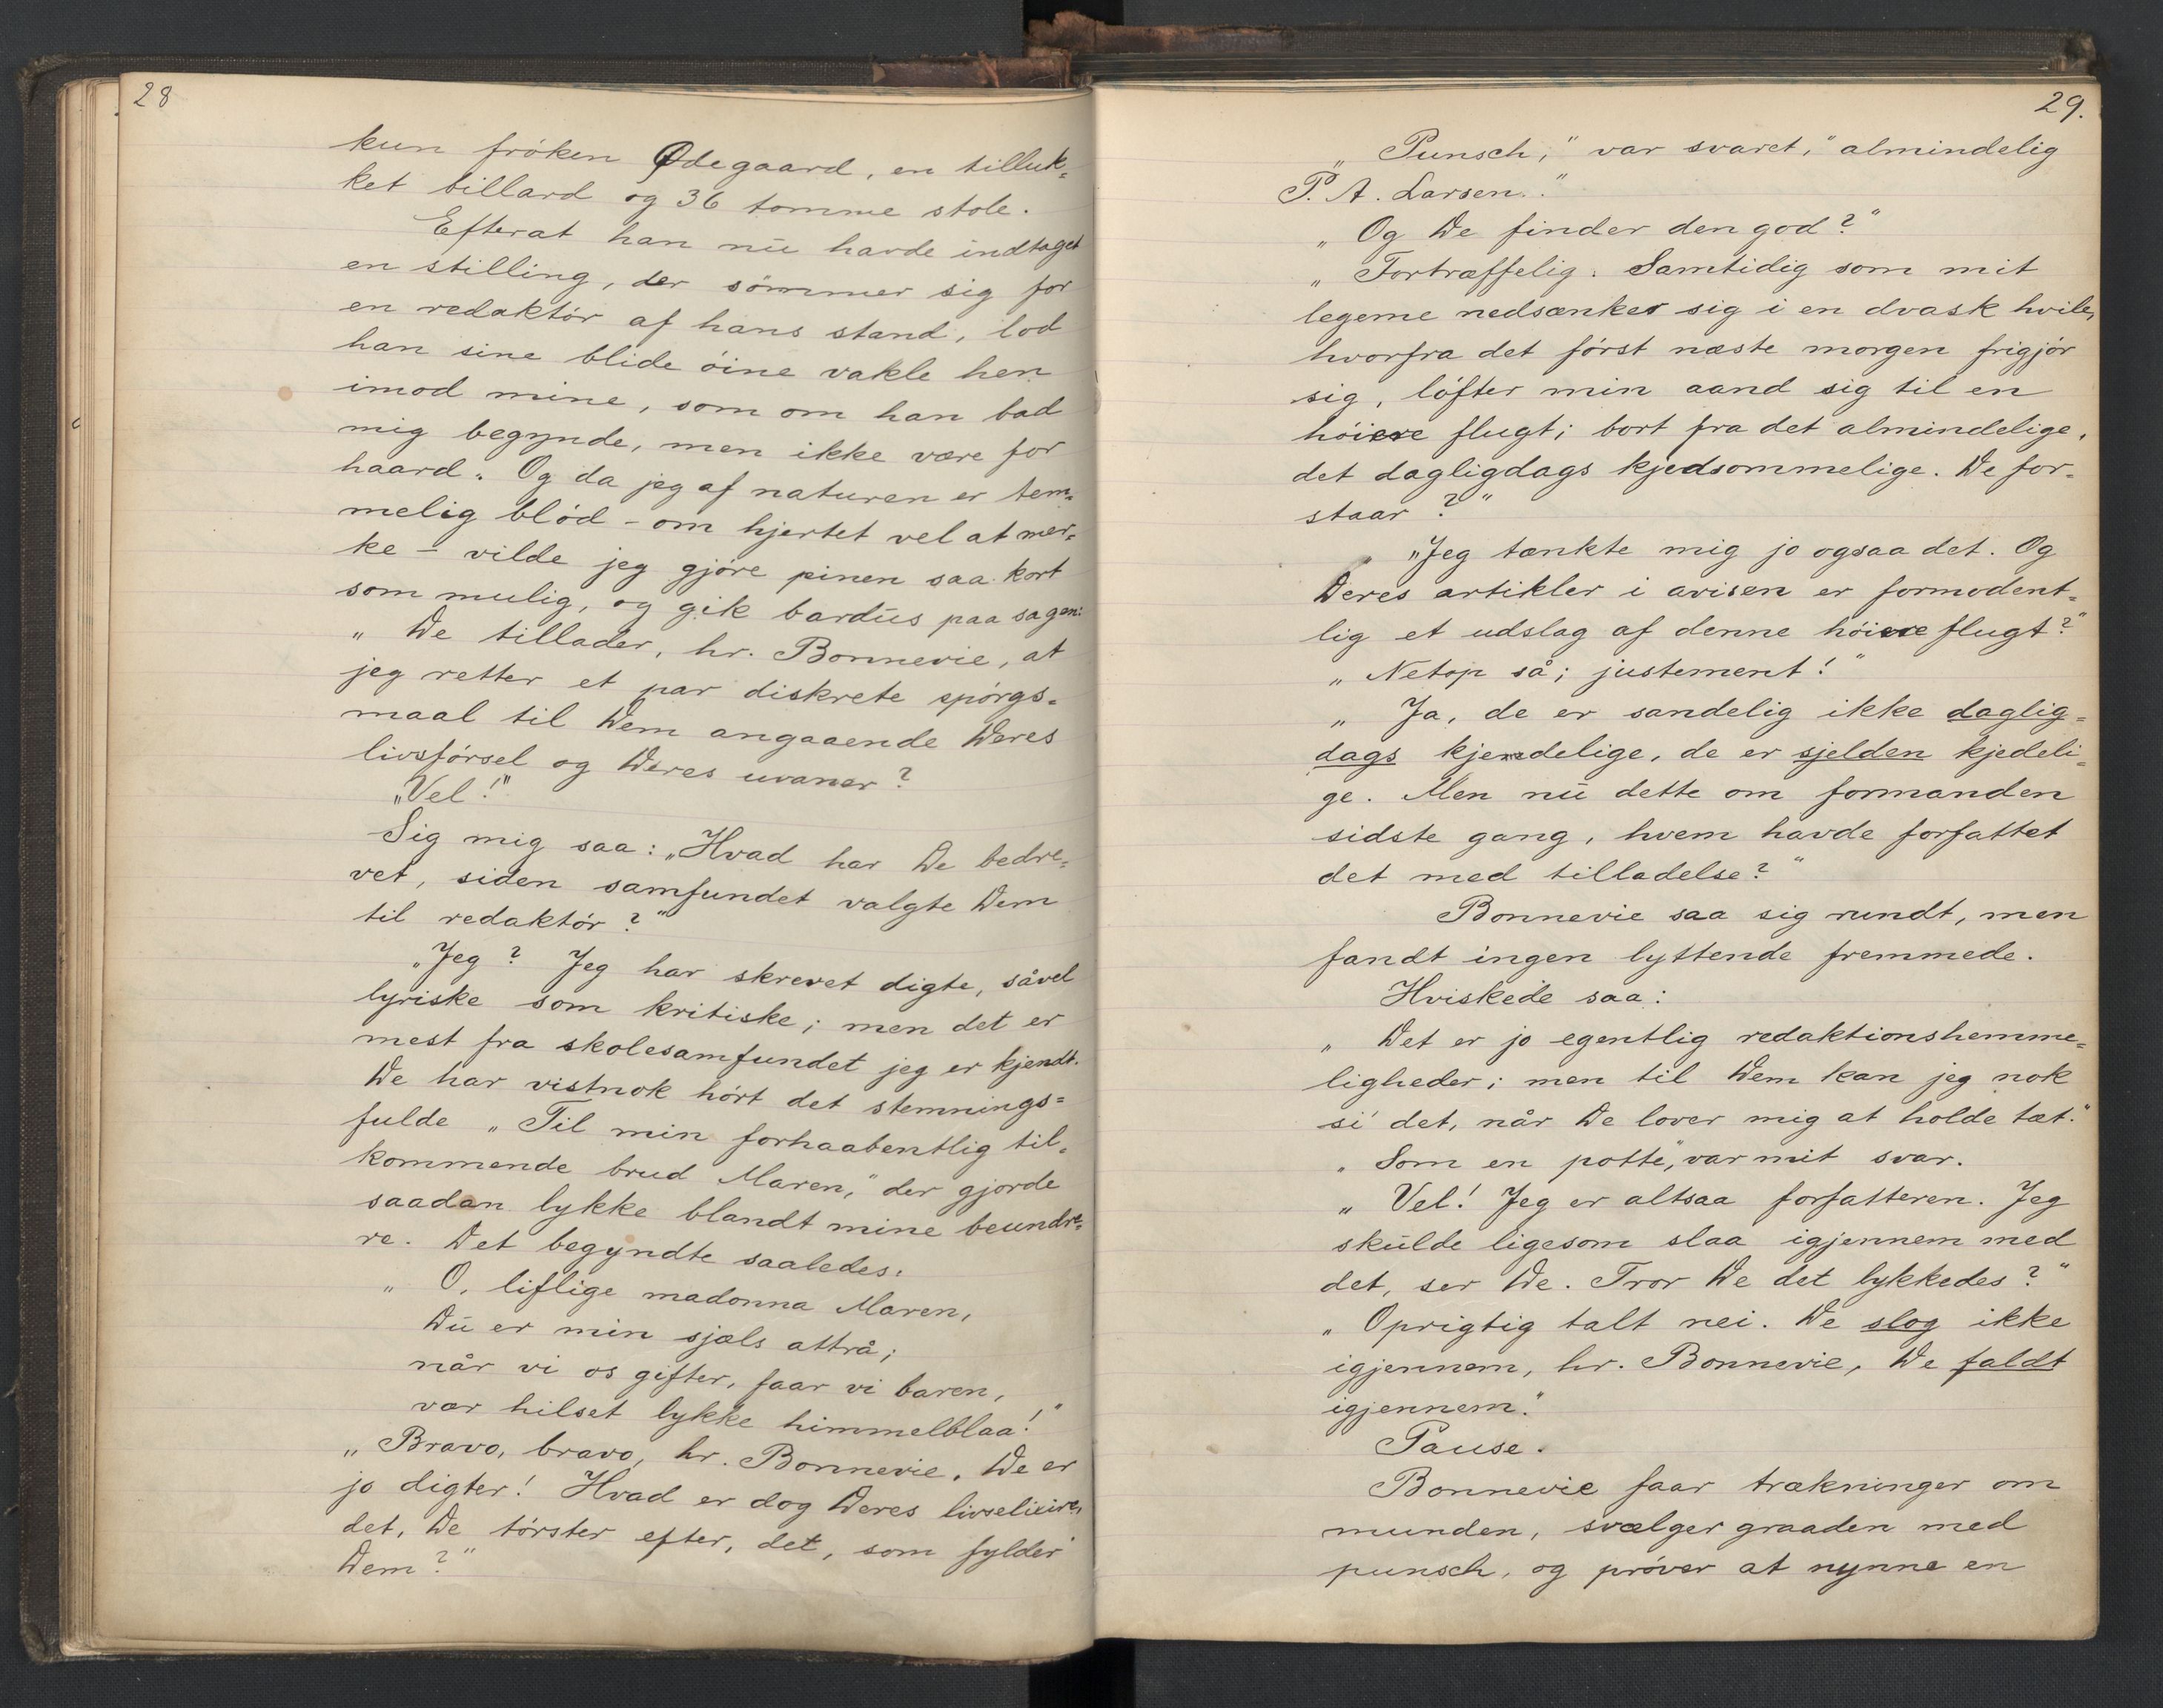 28
kun fröken Ødegaard, en tilluk-
ket billard og 36 tomme stole.
Efterat han nu havde indtaget
en stilling, der sömmer sig for
en redaktör af hans stand, lod
han sine blide öine vakle hen
imod mine, som om han bad
mig begynde, men ikke være for
haard. Og da jeg af naturen er tem-
melig blöd - om hjertet vel at mer-
ke - vilde jeg gjöre pinen saa kort
som mulig, og gik bardus paa sagen:
„De tillader, hr. Bonnevie, at
jeg retter et par diskrete spörgs-
maal til Dem angaaende Deres
livsförsel og Deres uvaner?
„Vel!"
Sig mig saa: „Hvad har De bedre-
vet, siden samfundet valgte Dem
til redaktör?"
„Jeg? Jeg har skrevet digte, såvel
lyriske som kritiske; men det er
mest fra skolesamfundet jeg er kjendt.
De har vistnok hört det stemnings-
fulde „Til min forhaabentlig til-
kommende brud Maren," der gjorde
saadan lykke blandt mine beundre-
re. Det begyndte saaledes:
„O, liflige madonna Maren,
Du er min sjæls attrå;
når vi os gifter, faar vi baren,
vær hilset lykke himmelblaa!"
„Bravo, bravo, hr. Bonnevie. De er
jo digter! Hvad er dog Deres livselixir,
det, De törster efter, det, som fylder
Dem?"
29.
„Punsch," var svaret, "almindelig
P. A. Larsen."
„Og De finder den god?"
„Fortræffelig. Samtidig som mit
legeme nedsænker sig i en dvask hvile,
hvorfra det först næste morgen frigjör
sig, löfter min aand sig til en
höiere flugt; bort fra det almindelige,
det dagligdags kjedsommelige. De for-
staar?"
„Jeg tænkte mig jo ogsaa det. Og
Deres artikler i avisen er formodent-
lig et udslag af denne höiere flugt?"
„Netop så; justement!"
„Ja, de er sandelig ikke daglig-
dags kjendelige, de er sjelden kjedeli-
ge. Men nu dette om formanden
sidste gang, hvem havde forfattet
det med tilladelse?"
Bonnevie saa sig rundt, men
fandt ingen lyttende fremmede.
Hviskede saa:
„Det er jo egentlig redaktionshemme-
ligheder; men til Dem kan jeg nok
si' det, når De lover mig at holde tæt."
„Som en potte", var mit svar.
„Vel! Jeg er altsaa forfatteren. Jeg
skulde ligesom slaa igjennem med
det, ser De. Tror De det lykkedes?"
„Oprigtig talt nei. De slog ikke
igjennem, hr. Bonnevie, De faldt
igjennem."
Pause.
Bonnevie faar trækninger om
munden, svælger graaden med
punsch, og pröver at nynne en